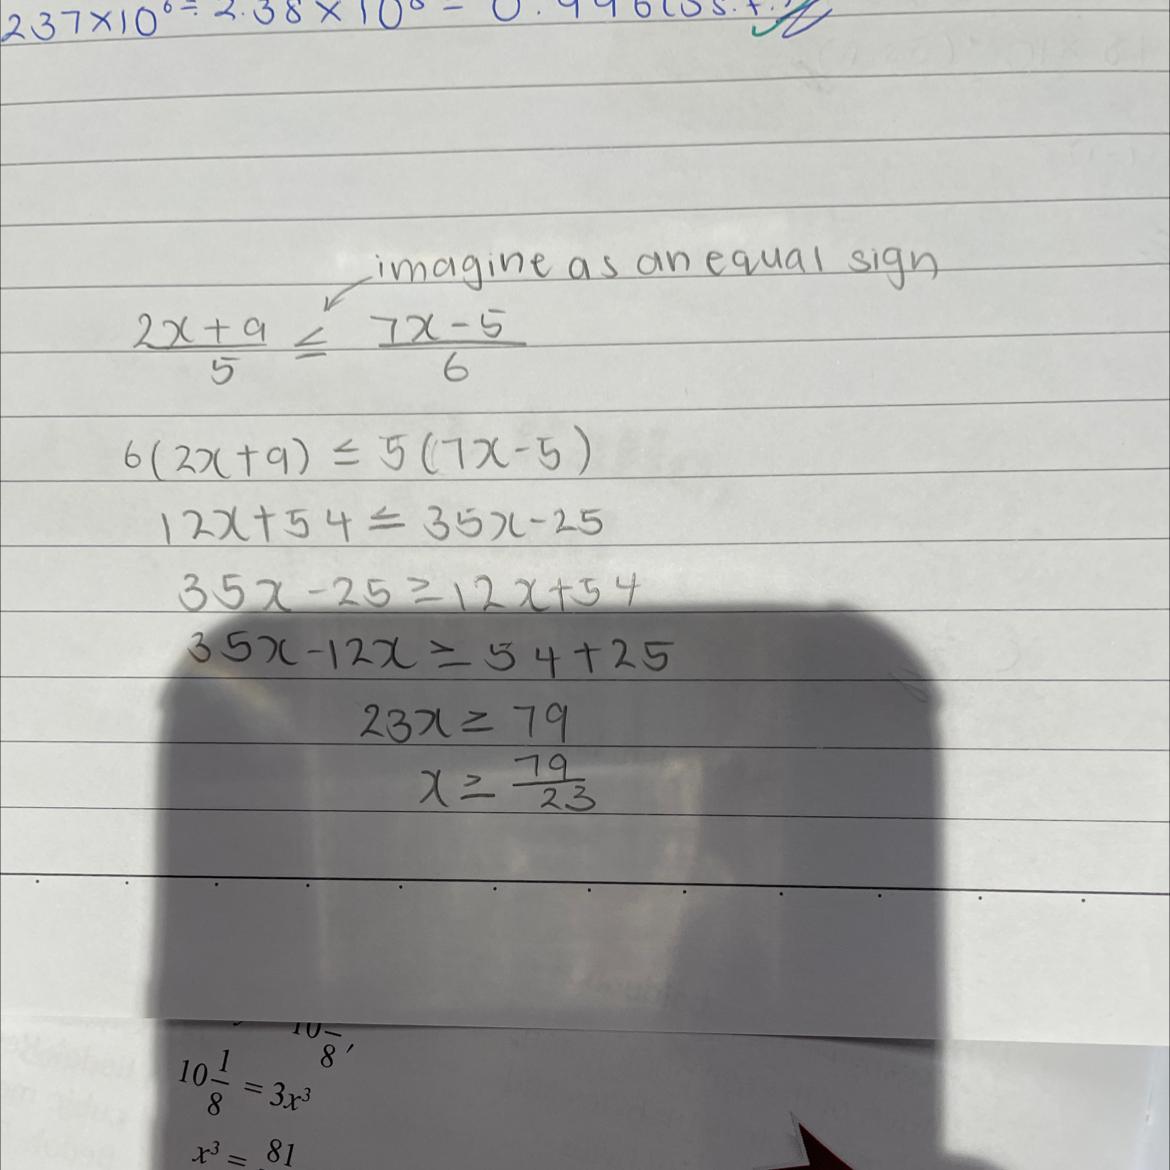 237×10⁶ ÷ 2.38×10⁸ = 0.996
imagine as an equal sign
2x+9/5 ≤ 7x-5/6
6(2x+9) ≤ 5(7x-5)
12x+54 ≤ 35x-25
35x-25 ≥ 12x+54
35x-12x ≥ 54+25
23x ≥ 79
x ≥ 79/23
10 1/8 = 3x³
x³ = 81